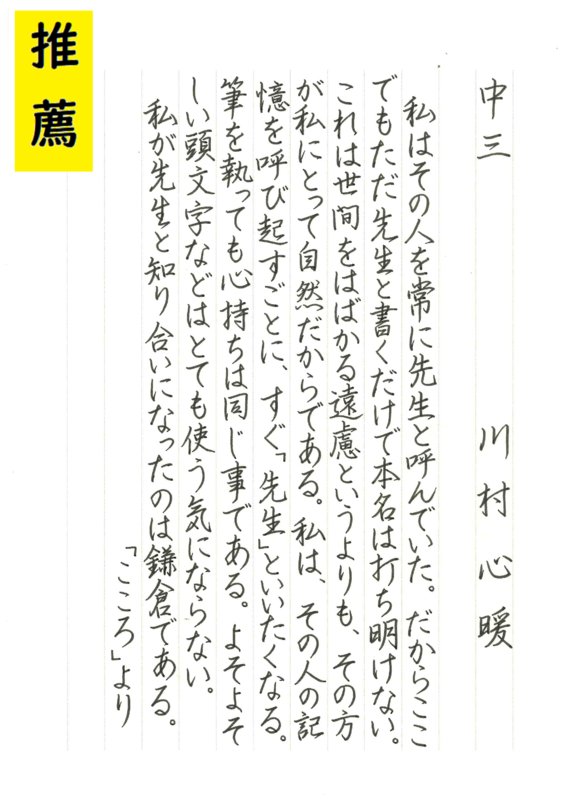 推薦
中三 川村心暖
私はその人を常に先生と呼んでいた。だからここ
でもただ先生と書くだけで本名は打ち明けない。
これは世間をはばかる遠慮というよりも、その方
が私にとって自然だからである。私は、その人の記
憶を呼び起すごとに、すぐ「先生」といいたくなる。
筆を執っても心持ちは同じ事である。よそよそ
しい頭文字などはとても使う気にならない。
私が先生と知り合いになったのは鎌倉である。
「こころ」より